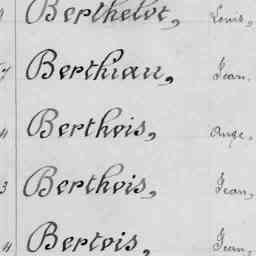 Berthelot, Louis,
Berthiau, Jean.
Berthois, Ange.
3 Berthois, Jean,
Bertois, Jean,